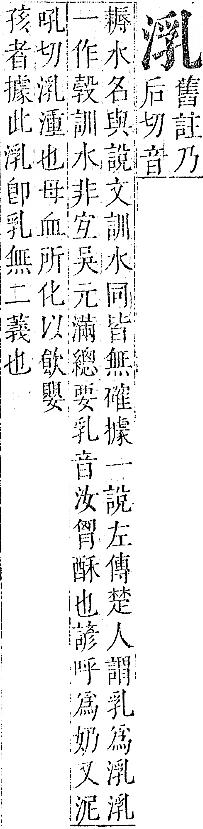 㳶
舊註乃
后切音
耨水名與說文訓水同皆無確據一說左傳楚人謂乳爲㳶㳶
一作㝅訓水非宐吳元滿總要乳音汝胷酥也諺呼爲奶又泥
吼切㳶湩也母血所化以飮嬰
孩者據此㳶卽乳無二義也